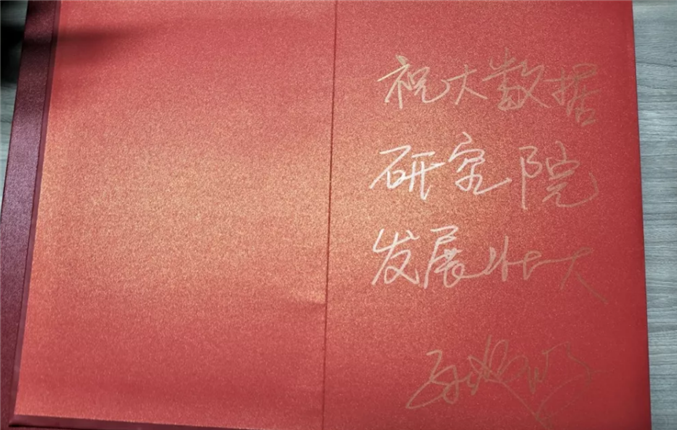 祝大数据
研究院
发展壮大